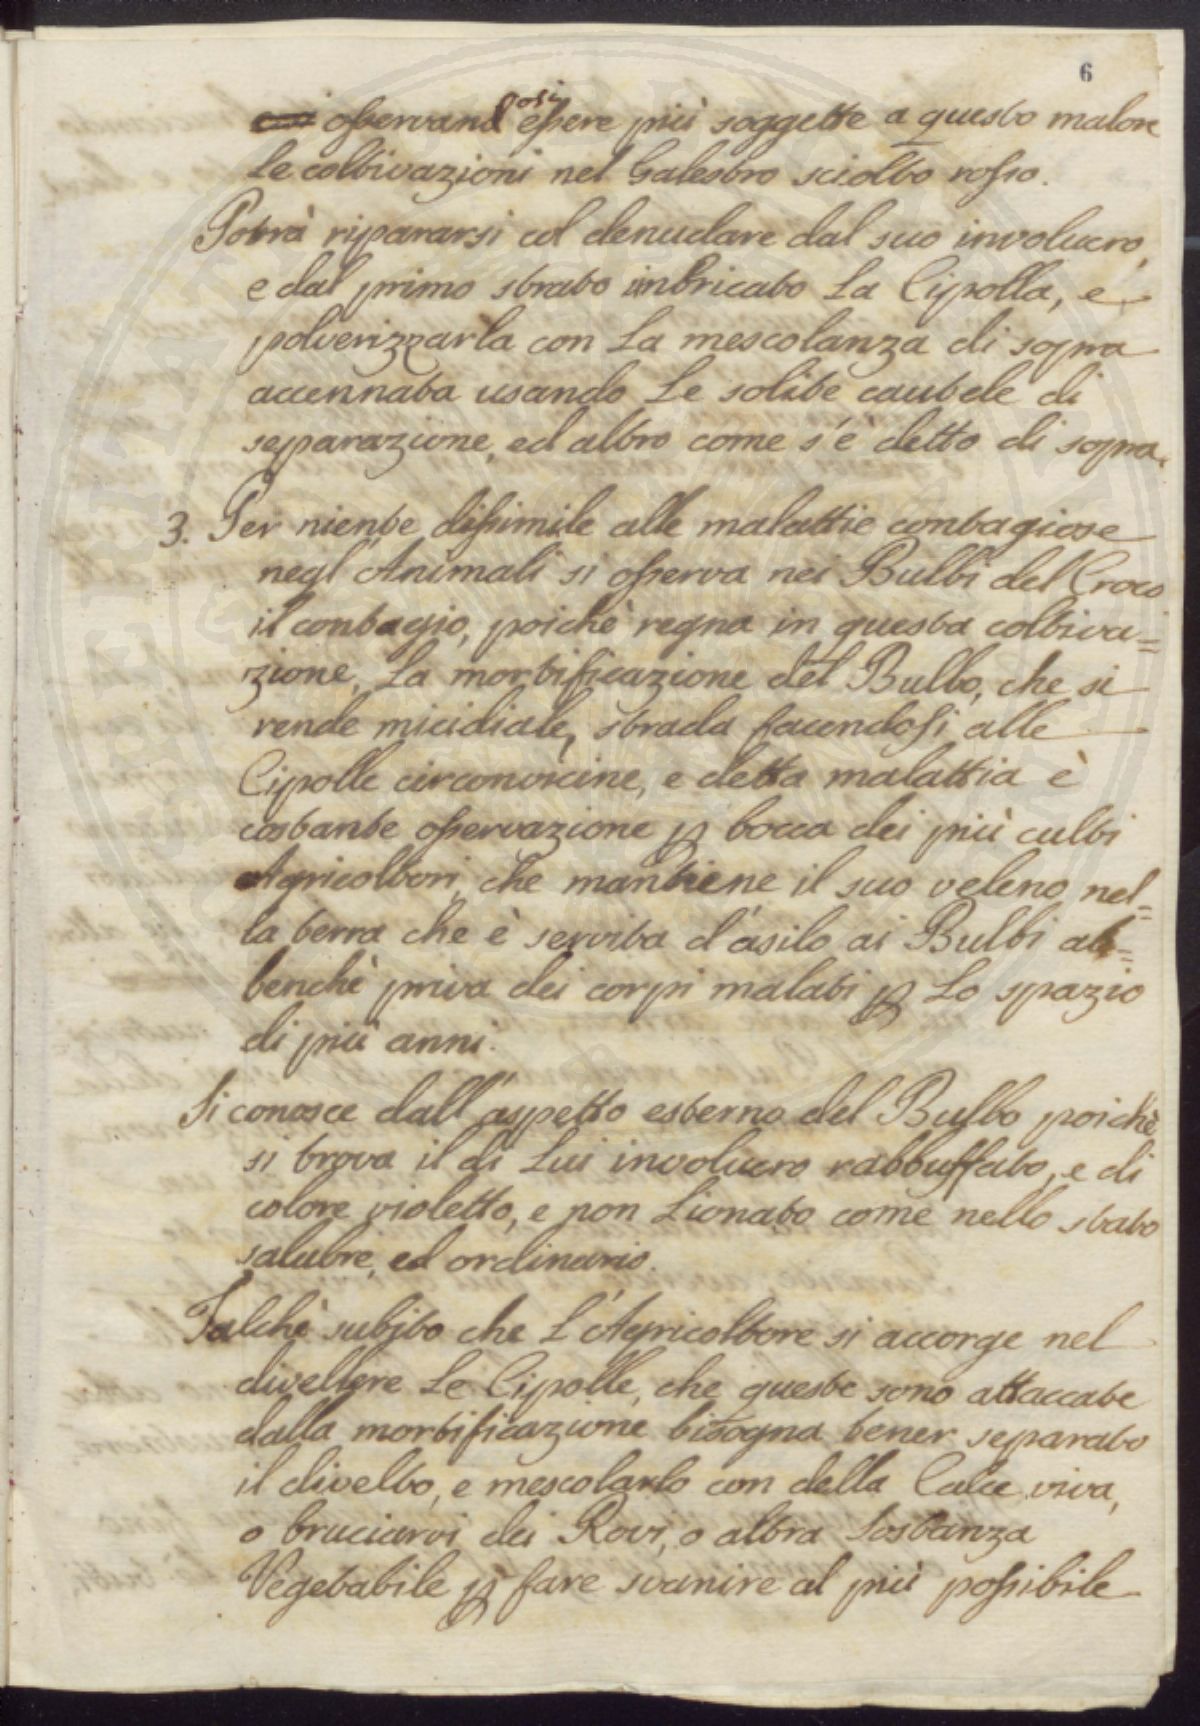 6
osservandosi essere più soggette a questo malore
le coltivazioni nel Galestro sciolto rosso.
Potrà ripararsi col denudare dal suo involucro,
e dal primo strato imbricato La Cipolla, e
polverizzarla con La mescolanza di sopra
accennata usando Le solite cautele di
separazione, ed altro come s'è detto di sopra.
3. Per niente dissimile alle malattie contagiose
negl'Animali si osserva nei Bulbi del Croco
il contagio, poichè regna in questa coltiva=
zione, La mortificazione del Bulbo, che si
rende micidiale, strada facendosi alle
Cipolle circonvicine, e detta malattia è
costante osservazione ꝑ bocca dei più culti
Agricoltori, che mantiene il suo veleno nel=
la terra che è servita d'asilo ai Bulbi ab=
benchè priva dei corpi malati ꝑ Lo spazio
di più anni.
Si conosce dall'aspetto esterno del Bulbo poichè
si trova il di Lui involucro rabbuffato, e di
colore violetto, e non Lionato come nello stato
salubre, ed ordinario.
Talchè subjto che L'Agricoltore si accorge nel
divellere Le Cipolle, che queste sono attaccate
dalla mortificazione bisogna tener separato
il divelto, e mescolarlo con della Calce viva,
o bruciarvi dei Rovi, o altra Sostanza
Vegetabile ꝑ fare svanire al più possibile